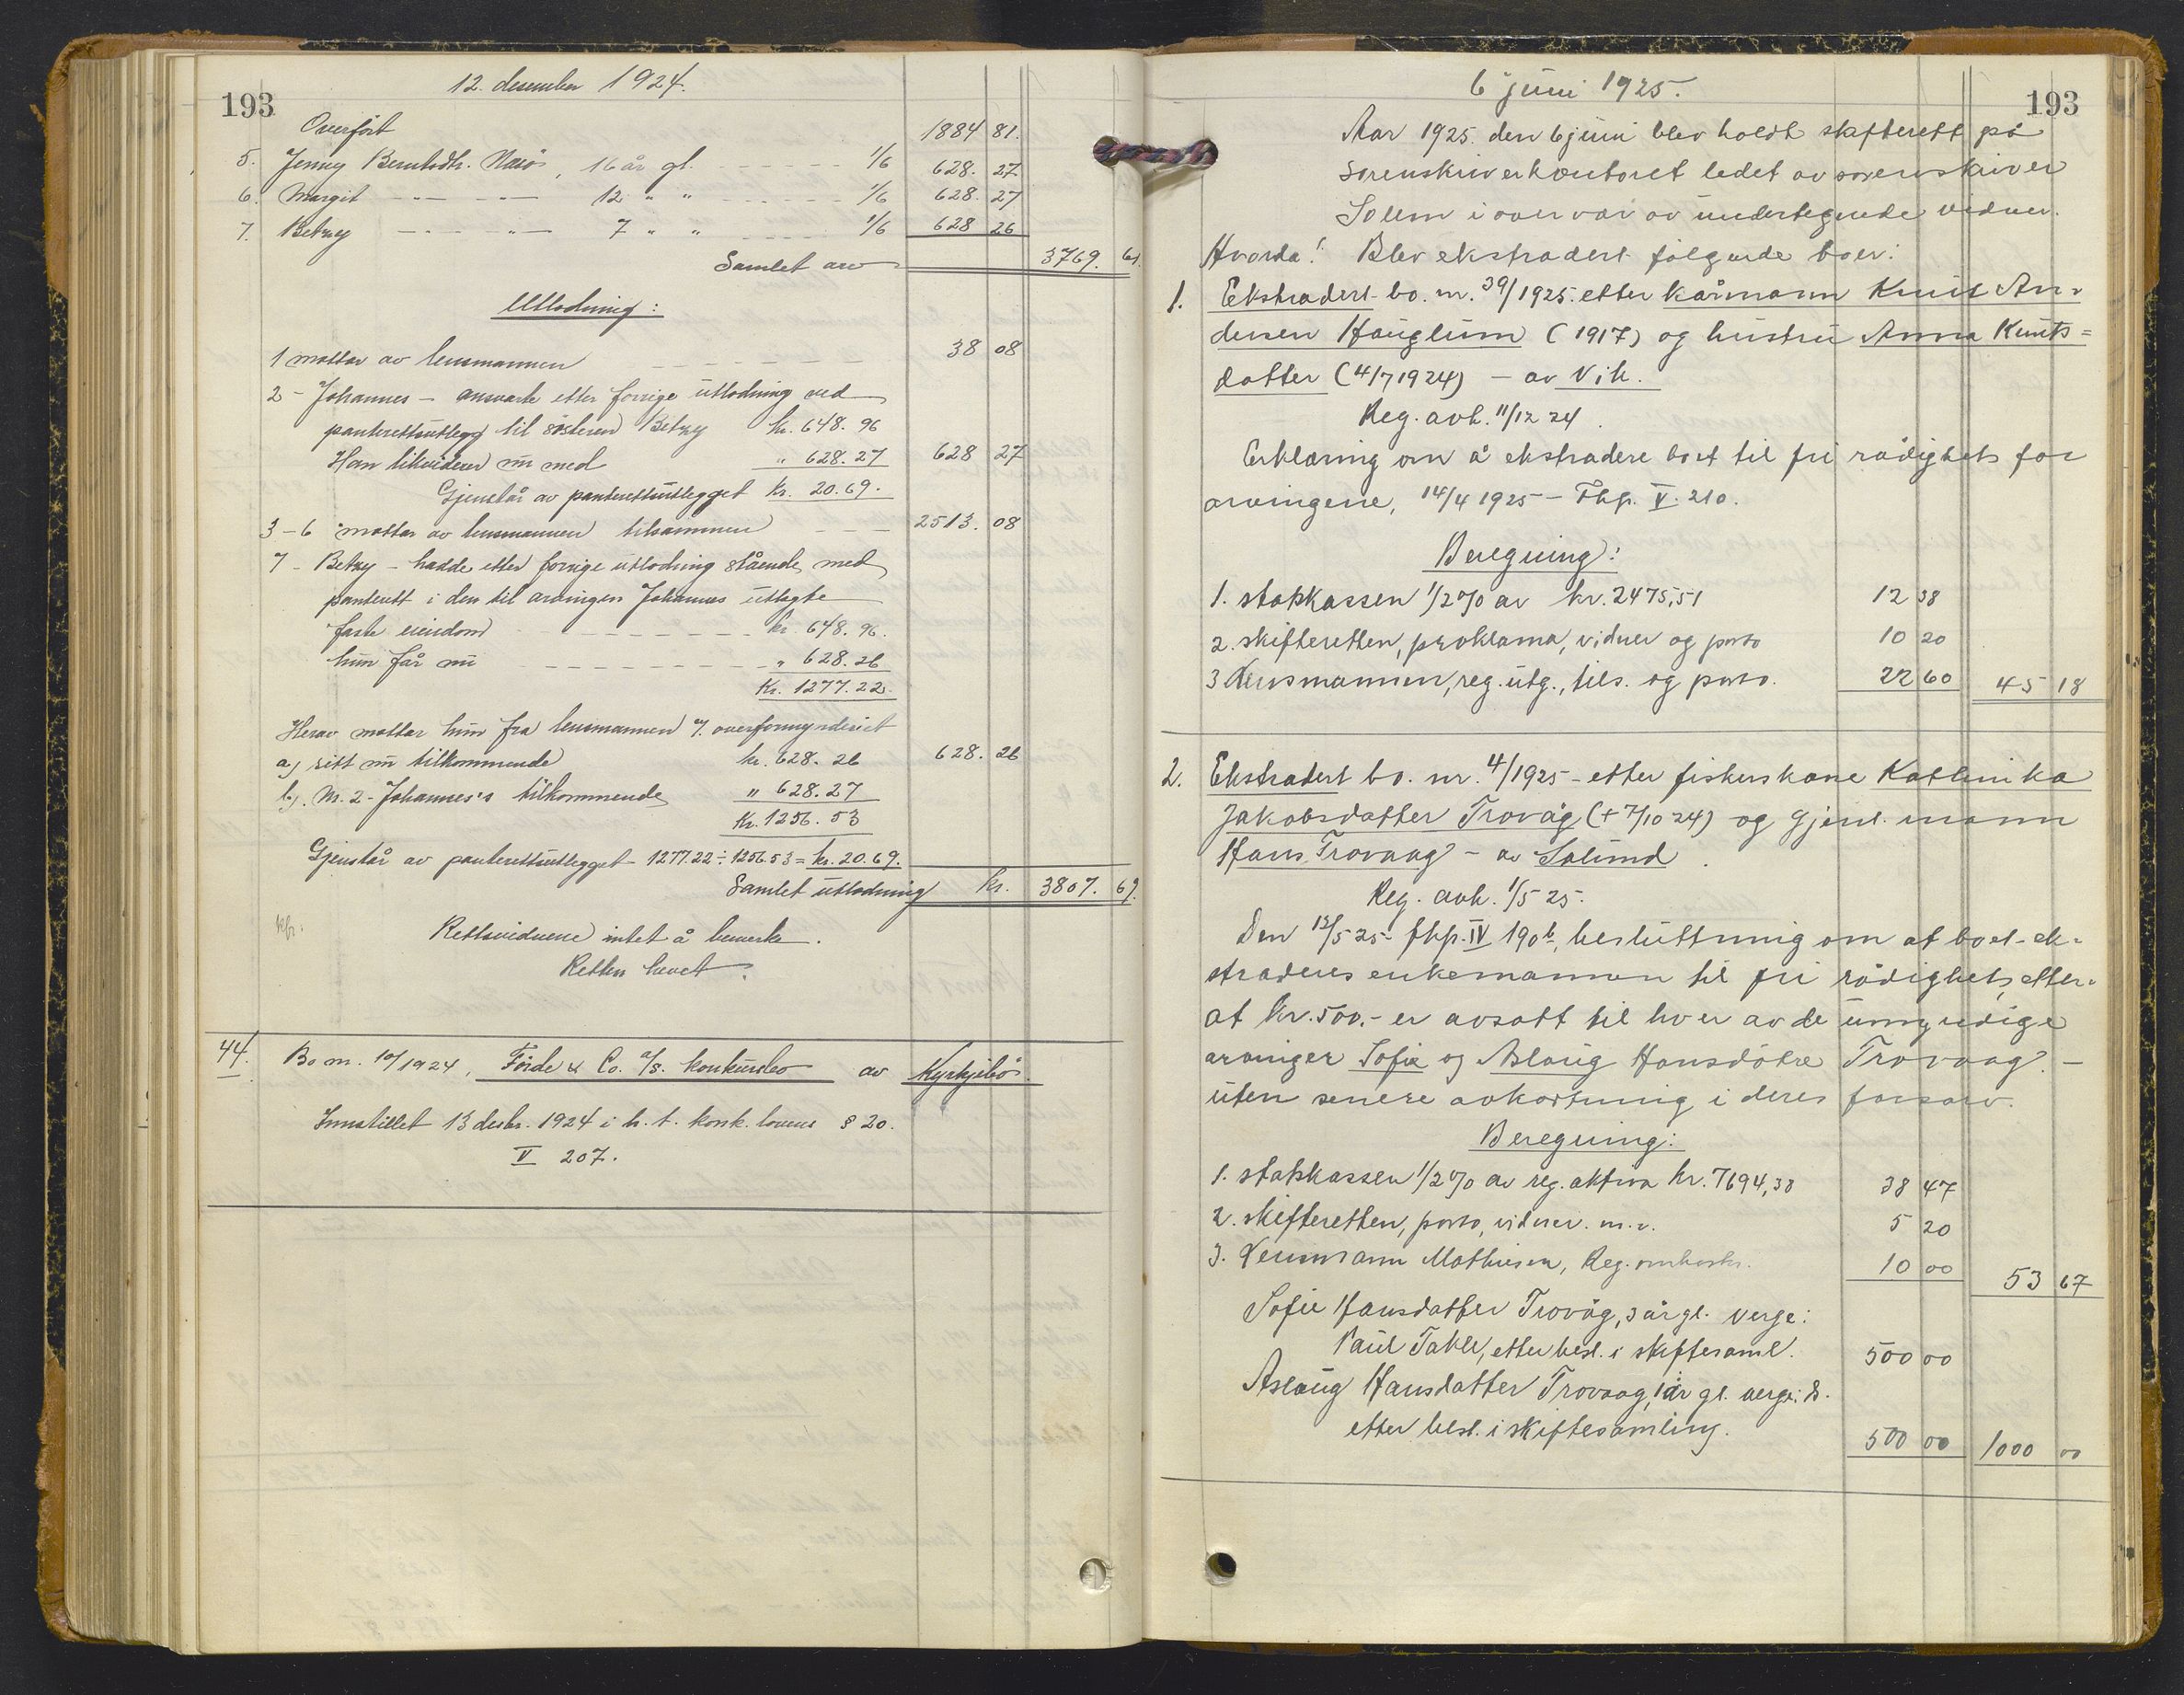 193
12. desember 1924.
Overført 1884 81.
5. Jenny Berntsdtr. Næsø, 16 år gl. - - - - 1/6 628. 27
6. Margit -"- -"- 12 " " - - - - 1/6 628. 27
7. Betzy -"- -"- 7 " " - - - - 1/6 628 26
Samlet arv 3769. 61.
Utlodning:
1 mottar av lensmannen - - - - 38 08
2 - Johannes - ansvarte etter forrige utlodning ved
panterettsutlegg til søsteren Betzy kr. 648. 96
Han likviderer nu med " 628. 27 628 27
Gjenstår av panterettsutlegget kr. 20. 69.
3-6 mottar av lensmannen tilsammen - - - 2513. 08
7 - Betzy - hadde etter forrige utlodning stående med
panterett i den til arvingen Johannes utlagte
faste eiendom - - - - kr. 648. 96.
hun får nu - - - - " 628. 26
Kr. 1277. 22.
Herav mottar hun fra lensmannen /. overformynderiet
a) sitt nu tilkommende kr. 628. 26 628. 26
b). Nr. 2 - Johannes's tilkommende " 628. 27
Kr. 1256. 53
Gjenstår av panterettsutlegget 1277.22 ÷ 1256.53 = kr. 20. 69.
Samlet utlodning kr. 3807. 69.
Rettsvidnene intet å bemerke.
Retten hevet.
44. Bo nr. 10/1924, Förde & Co. A/S. konkursbo av Kyrkjebø.
Innstillet 13 desbr. 1924 i h. t. konk. lovens § 20.
V 207.
6 juni 1925.
193
Aar 1925 den 6 juni blev holdt skifterett på
sorenskriverkontoret ledet av sorenskriver
Solem i overvær av undertegnede vidner.
Hvorda: Blev ekstradert følgende boer:
1. Ekstradert bo. nr. 39/1925. etter kårmann Knut An-
dersen Hauglum (1917) og hustru Anna Knuts=
datter (4/7 1924) - av Vik.
Reg. avh. 11/12 24.
Erklæring om å ekstradere boet til fri rådighet for
arvingene, 14/4 1925 - Fhp. V. 210.
Beregning:
1. statskassen 1/2 % av kr. 2475,51 12 38
2. skifteretten, proklama, vidner og porto 10 20
3 Lensmannen, reg. utg., tils. og porto. 22 60 45 18
2. Ekstradert bo. nr. 4/1925 - etter fiskerskone Kathinka
Jakobsdatter Trovåg (+ 7/10 24) og gjenl. mann
Hans Trovaag - av Solund.
Reg. avh. 1/5 25.
Den 13/5 25 fhp. IV 190 b, besluttning om at boet ek-
straderes enkemannen til fri rådighet, etter-
at Kr. 500.- er avsatt til hver av de umyndige
arvinger Sofie og Aslaug Hansdøtre Trovaag. -
uten senere avkortning i deres farsarv.
Beregning:
1. statskassen 1/2 % av reg. aktiva Kr. 7694,38 38 47
2. skifteretten, porto, vidner. m. v. 5 20
3. Lensmann Mathiesen, Reg. omkostn. 10 00 53 67
Sofie Hansdatter Trovåg, 3 år gl. verge:
Paul Takle, etter besl. i skiftesaml. 500 00
Aslaug Hansdatter Trovaag, 1 år gl. verge: d.
etter besl. i skiftesamling. 500 00 1000 00